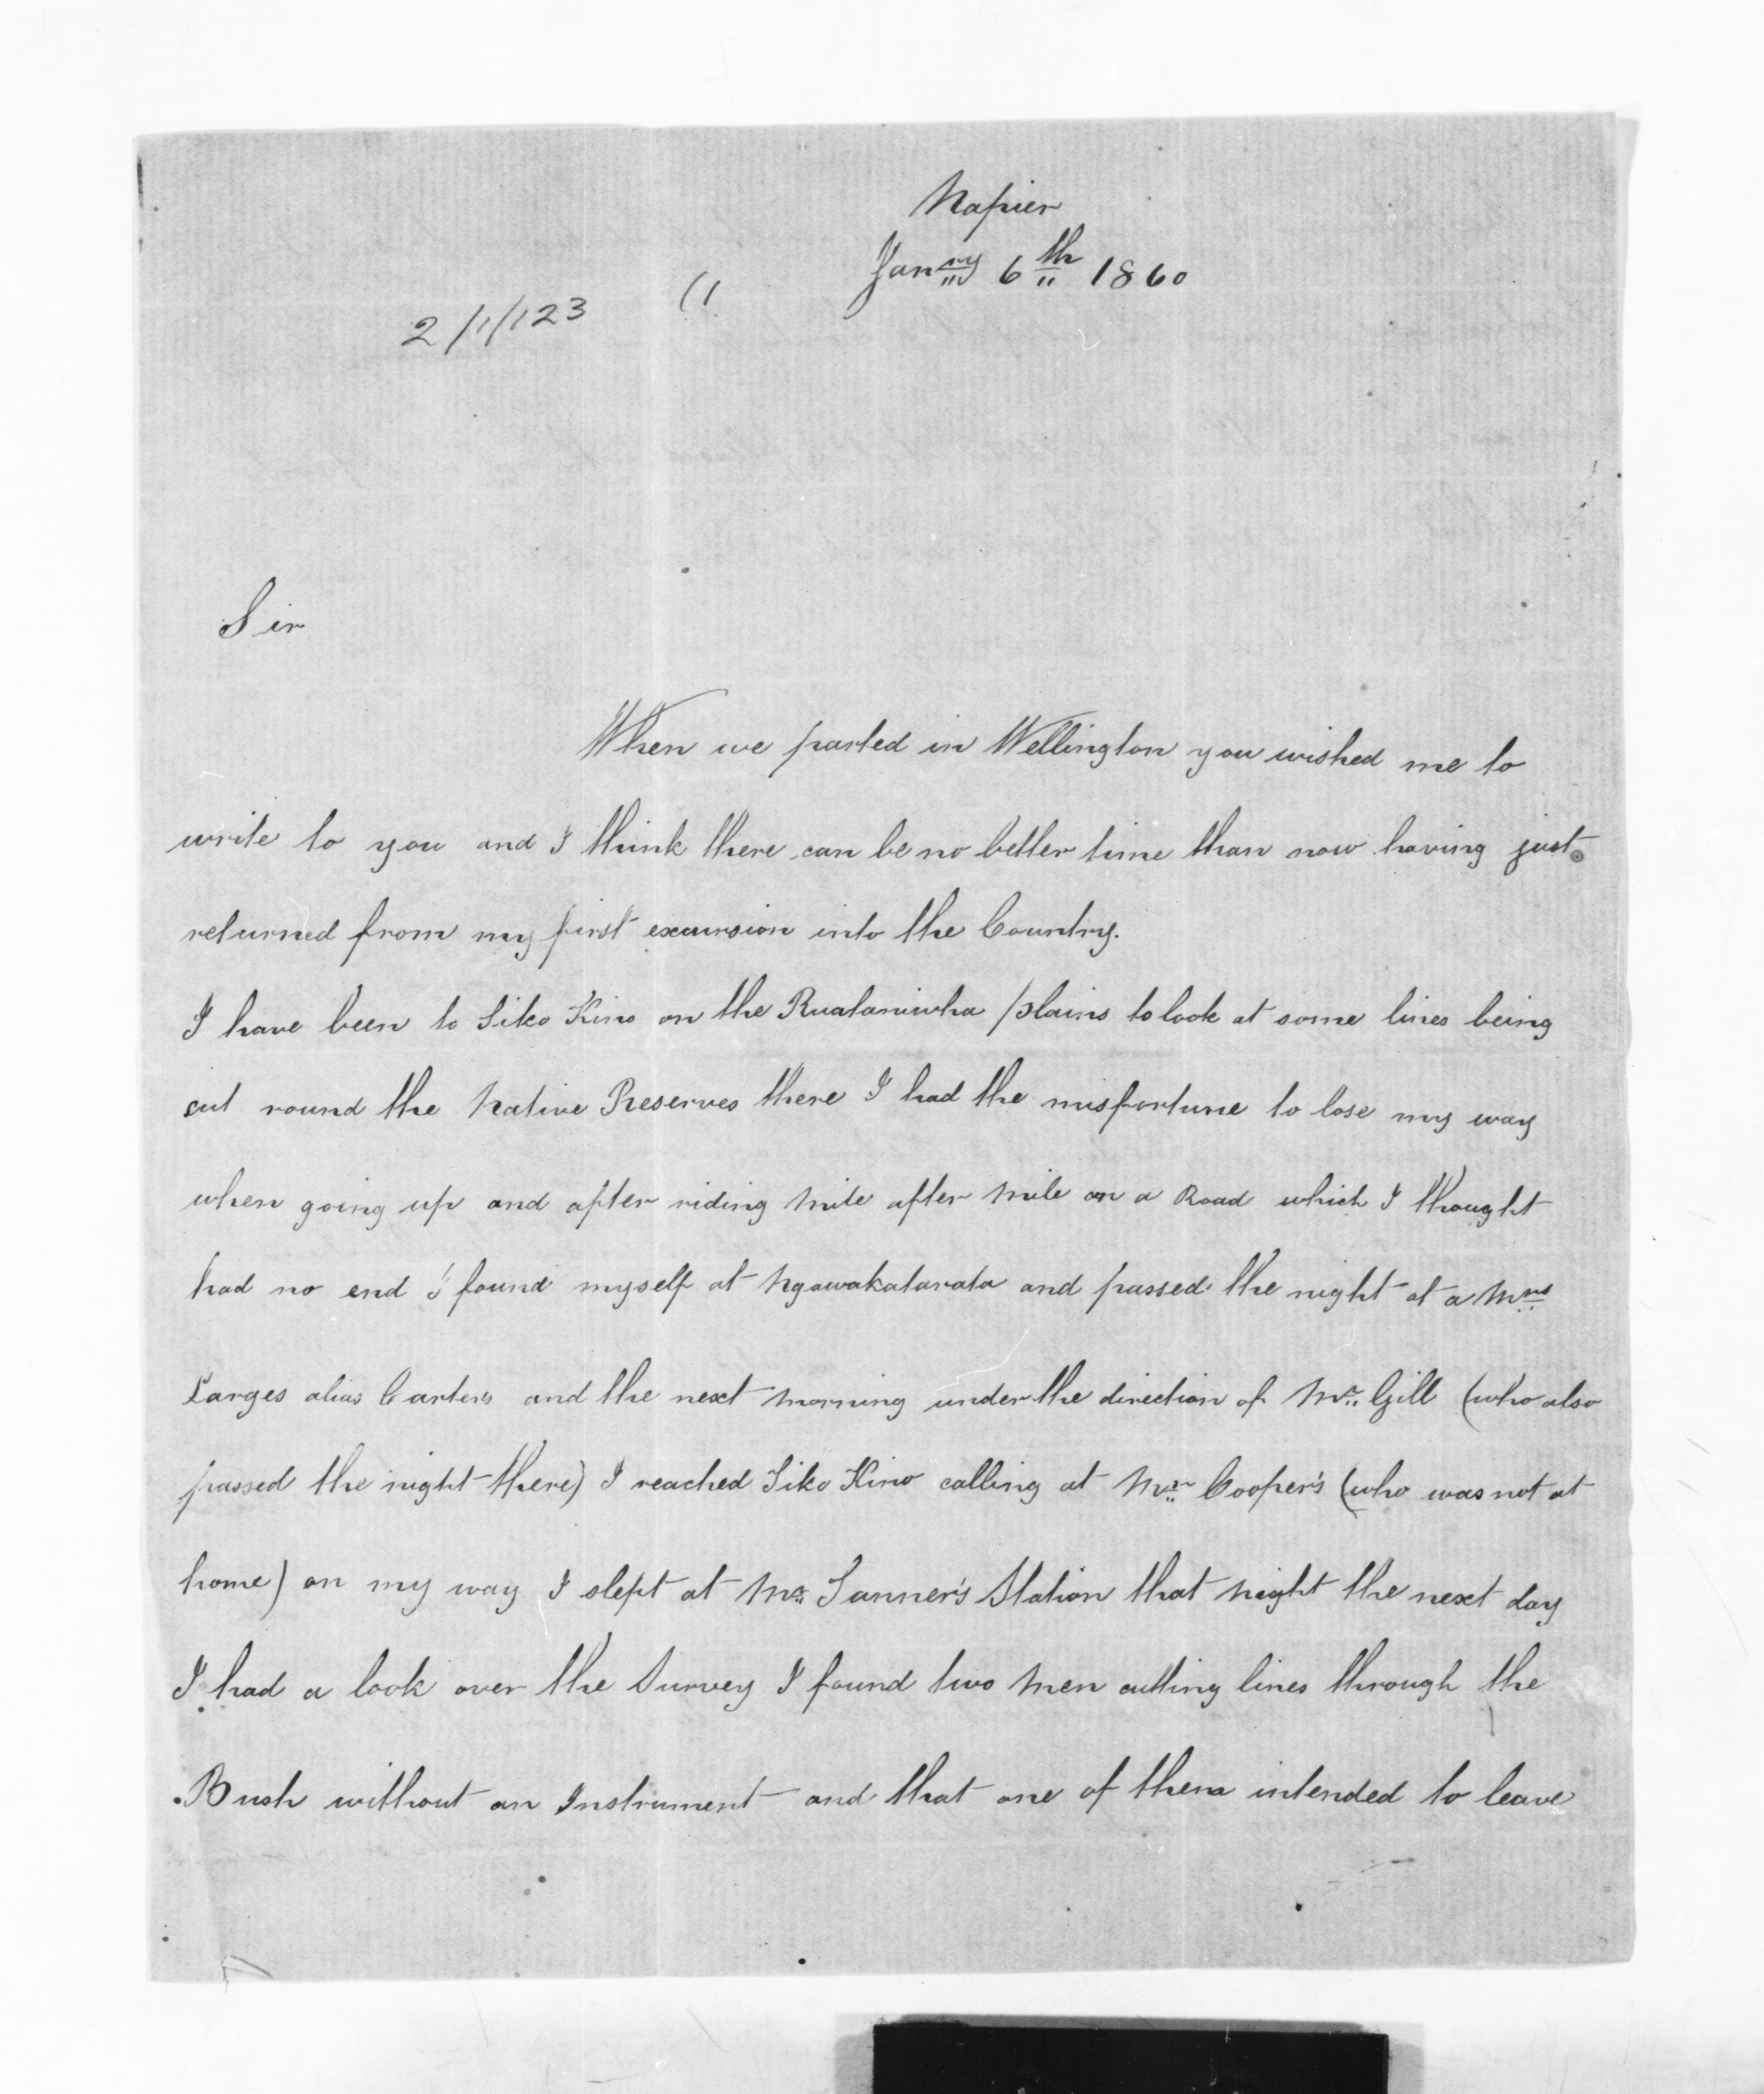 Napier
Janry 6th 1860
2/1/123 (1
Sir
When we parted in Wellington you wished me to
write to you and I think there can be no better time than now having just
returned from my first excursion into the Country.
I have been to Tiko Kino on the Ruataniwha plains to look at some lines being
cut round the Native Reserves there I had the misfortune to lose my way
when going up and after riding Mile after Mile on a Road which I thought
had no end I found myself at Ngawakatarata and passed the night at a Mrs
Larges alias Carters and the next Morning under the direction of Mr. Gill (who also
passed the night there) I reached Tiko Kino calling at Mr Cooper's (who was not at
home) on my way I slept at Mr Tanner's Station that Night the next day
I had a look over the Survey I found two Men cutting lines through the
Bush without an Instrument and that one of them intended to leave